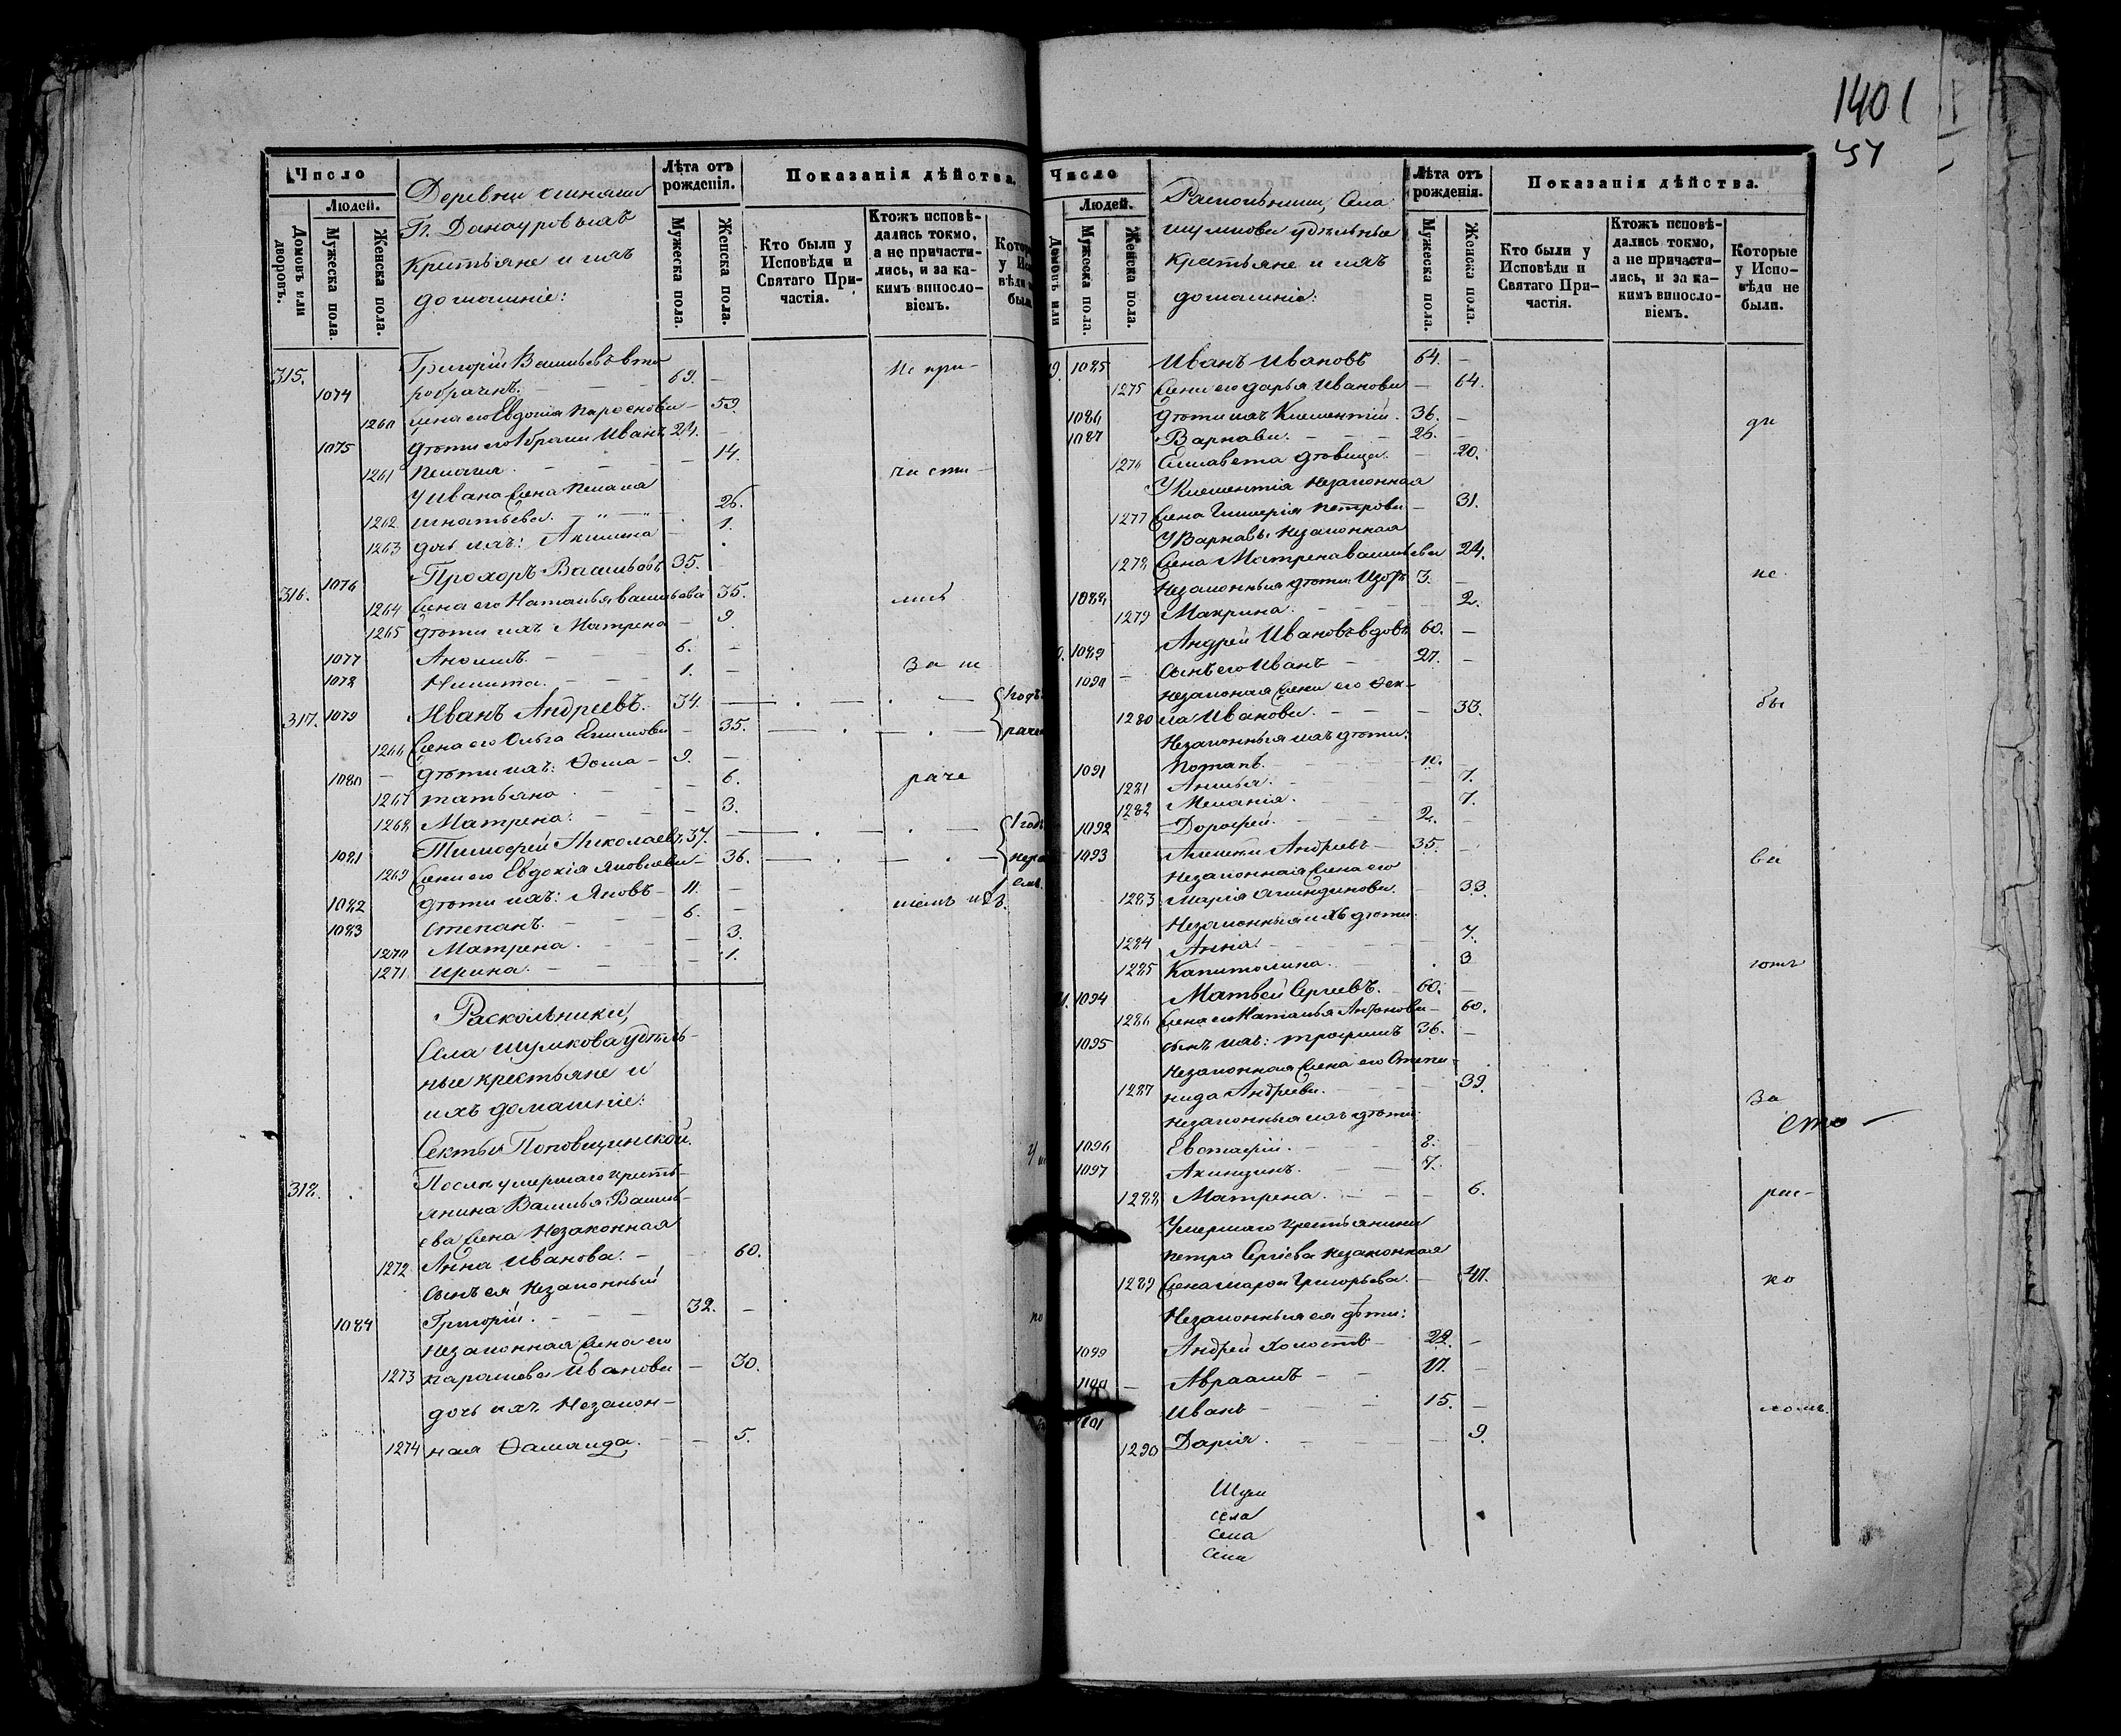 Число
Людей.
Домовъ или дворовъ.
Мужеска пола
Женска пола.
Деревни
Г. Донауровыхъ
Крестьяне и ихъ
домашнiе:
Лѣта отъ рожденія.
Мужеска пола.
Женска пола.
Показанія дѣйства.
Кто были у Исповѣди и Святаго При-частія.
Ктожъ исповѣ-дались токмо, а не причасти-лись, и за ка-кимъ виносло-віемъ.
315. Григорій Васильевъ вто
1074 робрачнъ. 69. Не при-
1260 жена его Евдокія 59.
1075 дѣти его 1 брака Иванъ 24.
1261 Пелагія 14. части-
У Ивана жена Пелагія
1262 Игнатьева. 26.
1263 дочь ихъ: Акилина 1.
316. 1076 Прохоръ Васильевъ 35.
1264 жена его Наталья Васильева 35. лись
1265 дѣти ихъ Матрена 9.
1077 6.
1078 Никита. 1. за
317. 1079 Иванъ Андреевъ. 34.
1266 жена его Ольга 35.
1080 дѣти ихъ: Ѳома 9.
1267 татьяна 6. раче
1268 Матрена. 3.
1081 Тимоѳей Николаевъ 37.
1269 жена его Евдокія Яковлева 36.
1082 дѣти ихъ: Яковъ 11. ніемъ
1083 степанъ. 6.
1270 Матрена. 3.
1271 Ирина. 1.
Раскольники,
Села Шумкова удѣль-
ные крестьяне и
ихъ домашніе:
Секты Поповщинской.
318. Послѣ умершаго кресть-
янина Василья Василь-
ева жена Незаконная
1272 Анна Иванова. 60.
Сынъ ея Незаконный
1084 Григорій. 32.
Незаконная жена его
1273 Иванова 30.
дочь ихъ Незакон-
1274 ная 5.
1401
Число
Людей.
Домовъ или
Мужеска пола.
Женска пола.
Раскольники, Села
Шумкова удѣльные
крестьяне и ихъ
домашніе:
Лѣта отъ рожденія.
Мужеска пола.
Женска пола.
Показанія дѣйства.
Кто были у Исповѣди и Святаго При-частія.
Ктожъ исповѣ-дались токмо, а не причасти-лись, и за ка-кимъ виносло-віемъ.
Которые у Испо-вѣди не были.
1085 Иванъ Ивановъ 64.
1275 жена его Дарья Иванова 64.
1086 дѣти ихъ Климентій. 36.
1087 Варнава. 26.
1276 Елисавета дѣвица. 20.
У Климентія Незаконная
1277 жена Гликерія Петрова 31.
У Варнавы Незаконная
1278 жена Матрена Васильева 24.
1088 Незаконныя дѣти: 3. не
1279 Макрина. 2.
1089 Андрей Ивановъ вдовъ 60.
1090 Сынъ его Иванъ 27.
Незаконная жена его Ѳек-
1280 ла Иванова. 33. бы
Незаконныя ихъ дѣти:
1091 Потапъ. 10.
1281 Анисья. 7.
1282 Меланія. 7.
1092 Дороѳей. 2.
1093 Алексѣй Андреевъ 35.
Незаконная жена его
1283 Марія Акиндинова. 33
Незаконныя ихъ дѣти:
1284 Анна. 7.
1285 Капитолина. 3
1094 Матвей Сергеевъ. 60.
1286 жена его Наталья Антонова 60.
1095 сынъ ихъ: трофимъ 36.
Незаконная жена его Степа-
1287 нида Андреева. 39. за
Незаконныя ихъ дѣти:
1096 Евстафій. 8.
1097 Акиндинъ. 7.
1288 Матрена. 6. рас-
Умершаго крестьянина
Петра Сергіева Незаконная
1289 жена Марѳа Григорьева. ко
Незаконныя ея дѣти:
1099 Андрей Холостъ 22.
1100 Авраамъ 17.
1101 Иванъ 15. ломъ.
1290 Дарія. 9.